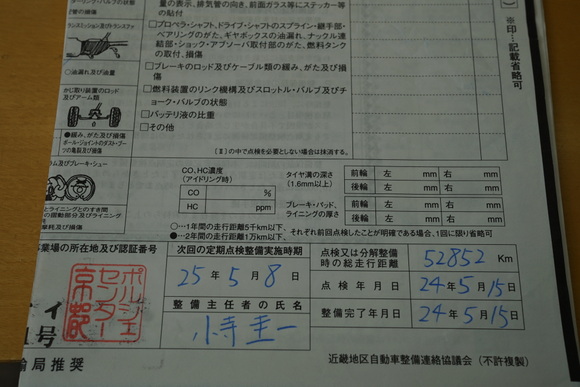 量の表示、排気管の向き、前面ガラス等にステッカー等
の貼付
管の損傷
ランスミッション及びトランスファ
□プロペラ・シャフト、ドライブ・シャフトのスプライン・継手部・
ベアリングのがた、ギヤボックスの油漏れ、ナックル連
結部・ショック・アブソーバ取付部のがた、燃料タンク
の取付、損傷
○油漏れ及び油量
□ブレーキのロッド及びケーブル類の緩み、がた及び損
傷
かじ取り装置のロッド
及びアーム類
□燃料装置のリンク機構及びスロットル・バルブ及びチ
ョーク・バルブの状態
□バッテリ液の比重
□その他
●緩み、がた及び損傷
ボール・ジョイントのダスト・ブー
ツの亀裂及び損傷
(Ⅱ)の中で点検を必要としない場合は抹消する。
※印…記載省略可
ム及びブレーキ・シュー
CO、HC濃度
(アイドリング時)
CO %
HC ppm
タイヤ溝の深さ
(1.6mm以上)
前輪 左 mm 右 mm
後輪 左 mm 右 mm
ブレーキ・パッド、
ライニングの厚さ
前輪 左 mm 右 mm
後輪 左 mm 右 mm
とライニングとのすき間
の摺動部分及びライニング
摩耗及び損傷
○…1年間の走行距離5千km以下、
●…2年間の走行距離1万km以下、それぞれ前回点検したことが明確である場合、1回に限り省略可
業場の所在地及び認証番号
次回の定期点検整備実施時期
25年5月8日
点検又は分解整備
時の総走行距離
52852 Km
点検年月日
24年5月15日
整備主任者の氏名
小寺圭一
整備完了年月日
24年5月15日
イ
1号
ポルシェ
センター
京都
輸局推奨
近畿地区自動車整備連絡協議会(不許複製)